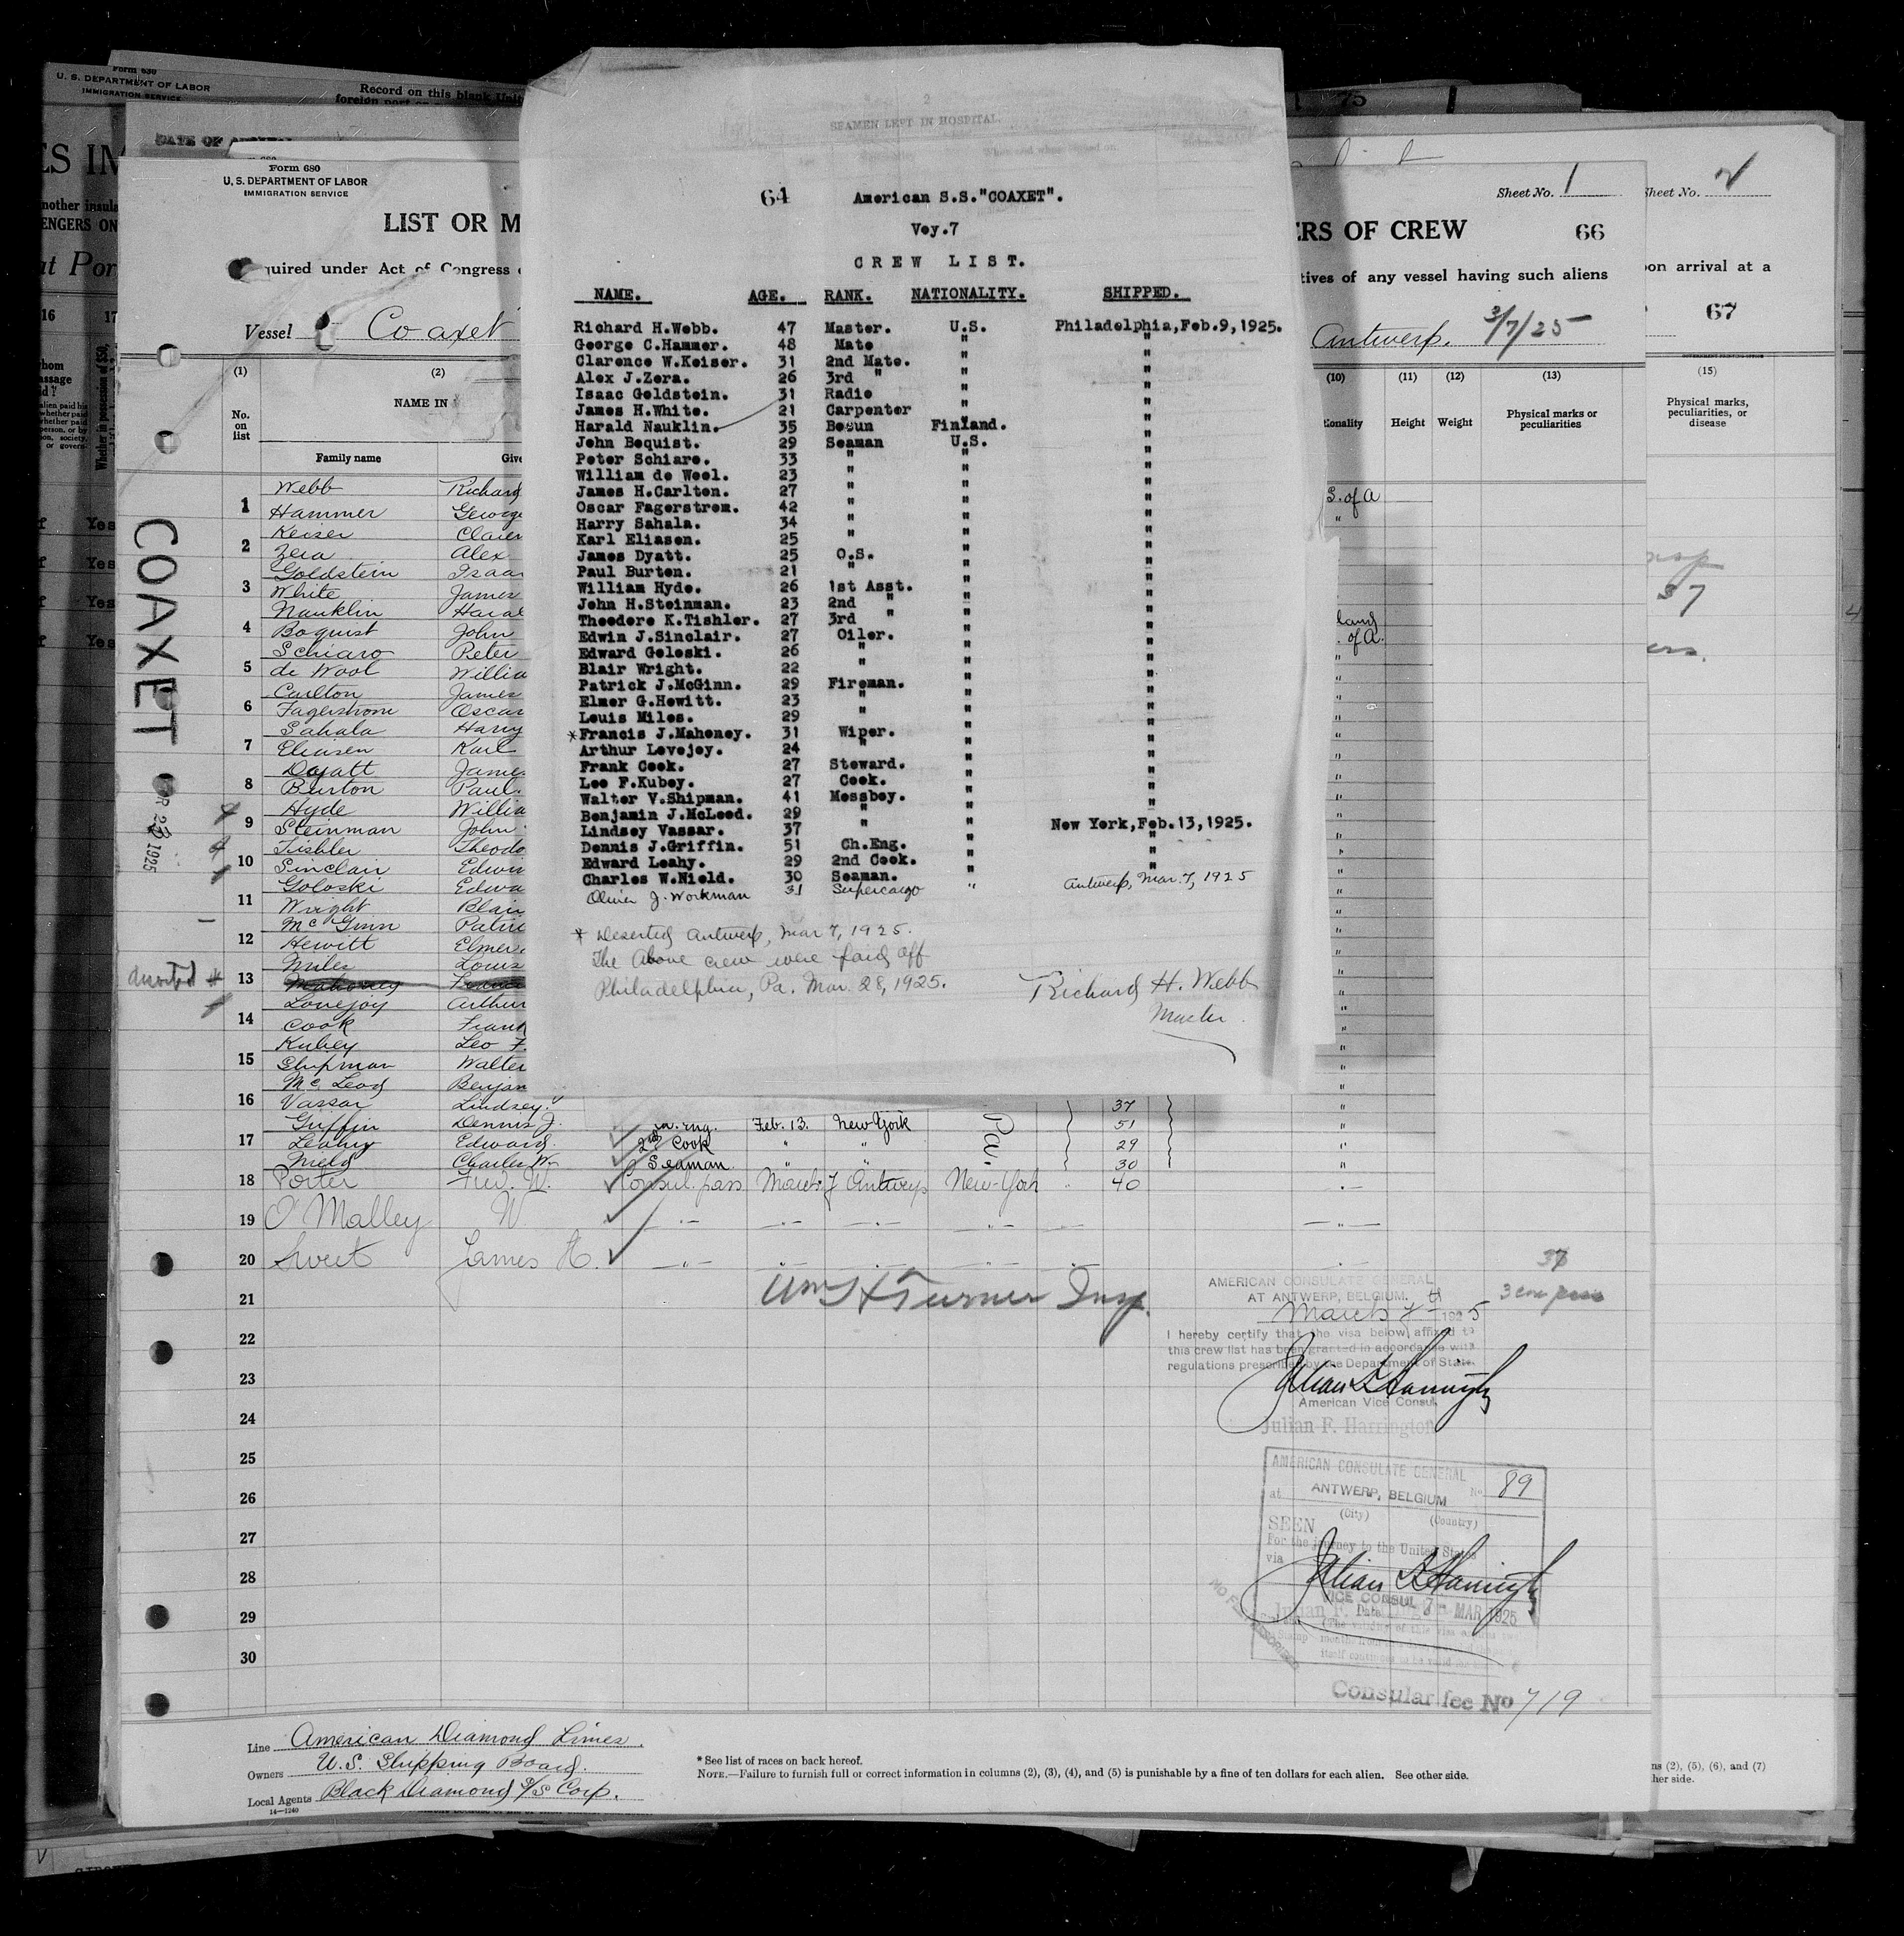 Form 630
U. S. DEPARTMENT OF LABOR
IMMIGRATION SERVICE
Record on this blank
SEAMEN LEFT IN HOSPITAL.
64 American S.S."COAXET".
Voy.7
CREW LIST.
NAME. AGE. RANK. NATIONALITY. SHIPPED.
Richard H.Webb. 47 Master. U.S. Philadelphia,Feb.9,1925.
George C.Hammer. 48 Mate " "
Clarence W.Keiser. 31 2nd Mate. " "
Alex J.Zera. 26 3rd " " "
Isaac Goldstein. 31 Radio " "
James H.White. 21 Carpenter " "
Harald Nauklin. 35 Bosun Finland. "
John Boquist. 29 Seaman U.S. "
Peter Schiaro. 33 " " "
William de Wool. 23 " " "
James H.Carlton. 27 " " "
Oscar Fagerstrom. 42 " " "
Harry Sahala. 34 " " "
Karl Eliasen. 25 " " "
James Dyatt. 25 O.S. " "
Paul Burton. 21 " " "
William Hyde. 26 1st Asst. " "
John H.Steinman. 23 2nd " " "
Theodore K.Tishler. 27 3rd " " "
Edwin J.Sinclair. 27 Oiler. " "
Edward Goloski. 26 " " "
Blair Wright. 22 " " "
Patrick J.McGinn. 29 Fireman. " "
Elmer G.Hewitt. 23 " " "
Louis Miles. 29 " " "
*Francis J.Mahoney. 31 Wiper. " "
Arthur Lovejoy. 24 " " "
Frank Cook. 27 Steward. " "
Leo F.Kubey. 27 Cook. " "
Walter V.Shipman. 41 Messboy. " "
Benjamin J.McLeod. 29 " " "
Lindsey Vassar. 37 " " New York,Feb.13,1925.
Dennis J.Griffin. 51 Ch.Eng. " "
Edward Leahy. 29 2nd Cook. " "
Charles W.Nield. 30 Seaman. " "
Oliver J. Workman 31 Supercargo " Antwerp, Mar. 7, 1925
* Deserted Antwerp, Mar 7, 1925.
The Above crew were paid off
Philadelphia, Pa. Mar. 28, 1925.
Richard H. Webb
Master.
Form 680
U. S. DEPARTMENT OF LABOR
IMMIGRATION SERVICE
Sheet No. 1
LIST OR M
ERS OF CREW 66
quired under Act of Congress
tives of any vessel having such aliens
Vessel Coaxet
Antwerp. 3/7/25
(1) (2) (10) (11) (12) (13)
No. on list
NAME IN
Family name
Height Weight
Physical marks or peculiarities
COAXET
1925
Webb Richard
1 Hammer George
Keiser
2 Zera Alex
Goldstein
3 White James
Nauklin
4 Boquist John
Schiaro Peter
5 de Wool
Carlton James
6 Fagerstrom Oscar
Sahala Harry
7 Eliasen Karl
Dyatt
8 Burton Paul.
Hyde
9 Steinman John
Tishler
10 Sinclair
Goloski
11 Wright Blair
McGinn
12 Hewitt
Miles Louis
deserted * 13 Mahoney
Lovejoy Arthur
14 Cook
Kubey Leo F.
15 Shipman Walter
McLeod
16 Vassar Lindsey. 37
Griffin Dennis J. Ch. Eng. Feb. 13. New York 51
17 Leahy Edward. 2nd Cook " " 29
Nield Charles W. Seaman. " " 30
18 Porter Fred. W. Consul. pass March 7 Antwerp New-York 40
19 O'Malley W
20 Sweet James H.
21
22
23
24
25
26
27
28
29
30
Wm H Turner Insp.
AMERICAN CONSULATE GENERAL
AT ANTWERP, BELGIUM.
March 7th 1925
I hereby certify that the visa below, affixed to
this crew list has been granted in accordance with
regulations prescribed by the Department of State.
American Vice Consul
Julian F. Harrington
AMERICAN CONSULATE GENERAL
at ANTWERP, BELGIUM No. 89
(City) (Country)
SEEN
For the journey to the United States
via
VICE CONSUL
Date 7 - MAR 1925
Consular fee No 719
Line American Diamond Lines.
Owners U.S. Shipping Board.
Local Agents Black Diamond S/S Corp.
14—1240
* See list of races on back hereof.
NOTE.—Failure to furnish full or correct information in columns (2), (3), (4), and (5) is punishable by a fine of ten dollars for each alien. See other side.
Sheet No. 2
on arrival at a
67
(15)
Physical marks, peculiarities, or disease
37
ns (2), (5), (6), and (7)
her side.